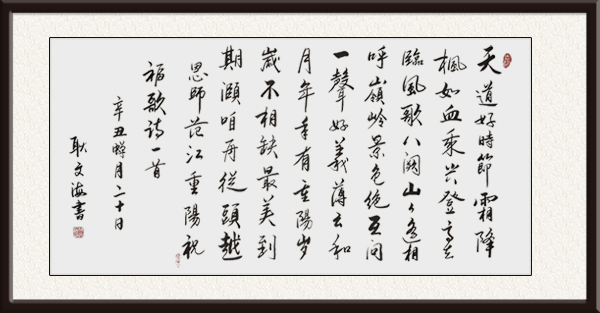 天道好時節霜降
楓如血乘兴登高去
臨風歌八闋山山遙相
呼嶺嶺景色絕互问
一聲好義薄云和
月年年有重陽岁
歲不相缺最美到
期頤咱再從頭越
恩師范江重陽祝
福歌诗一首
辛丑月二十日
耿文海書